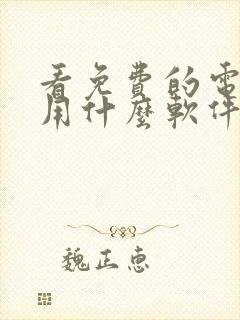 看免費的電
用什麼軟件
魏正惠